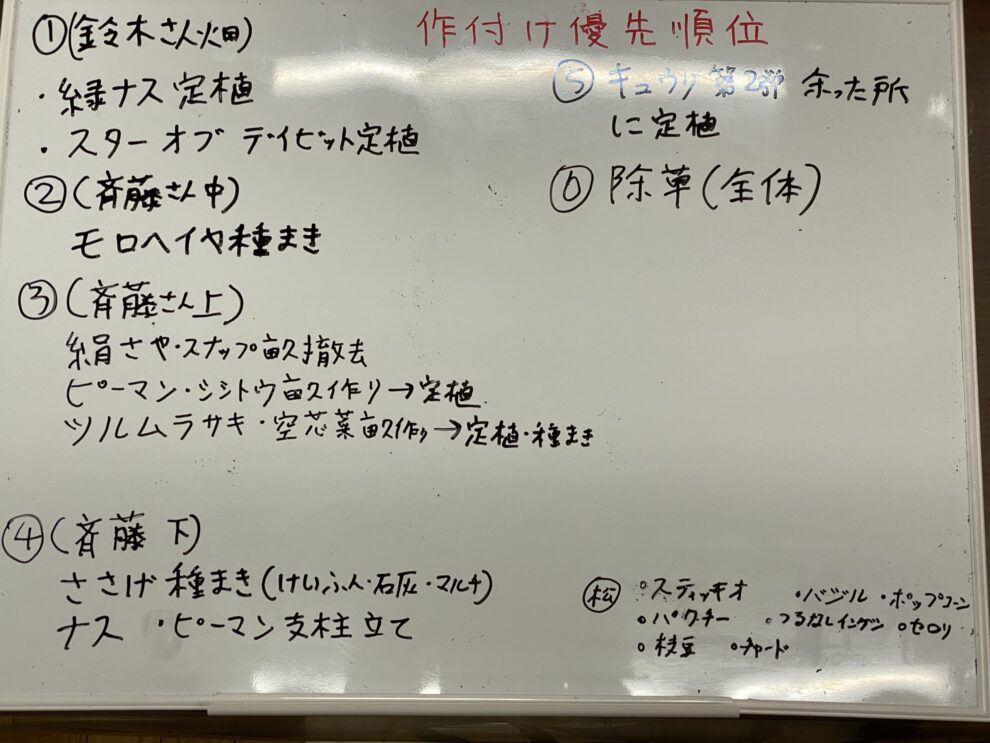 作付け優先順位
①(鈴木さん畑)
・緑ナス定植
・スターオブデイビット定植
②(斉藤さん中)
モロヘイヤ種まき
③(斉藤さん上)
絹さや・スナップ畝撤去
ピーマン・シシトウ畝作り→定植
ツルムラサキ・空芯菜畝作り→定植・種まき
④(斉藤 下)
ささげ種まき(けいふん・石灰・マルチ)
ナス ・ピーマン支柱立て
⑤ キュウリ第2弾 余った所
に定植
⑥ 除草(全体)
松 ・スティッキオ ・バジル ・ポップコーン
・パクチー ・つるなしインゲン ・セロリ
・枝豆 ・チャード